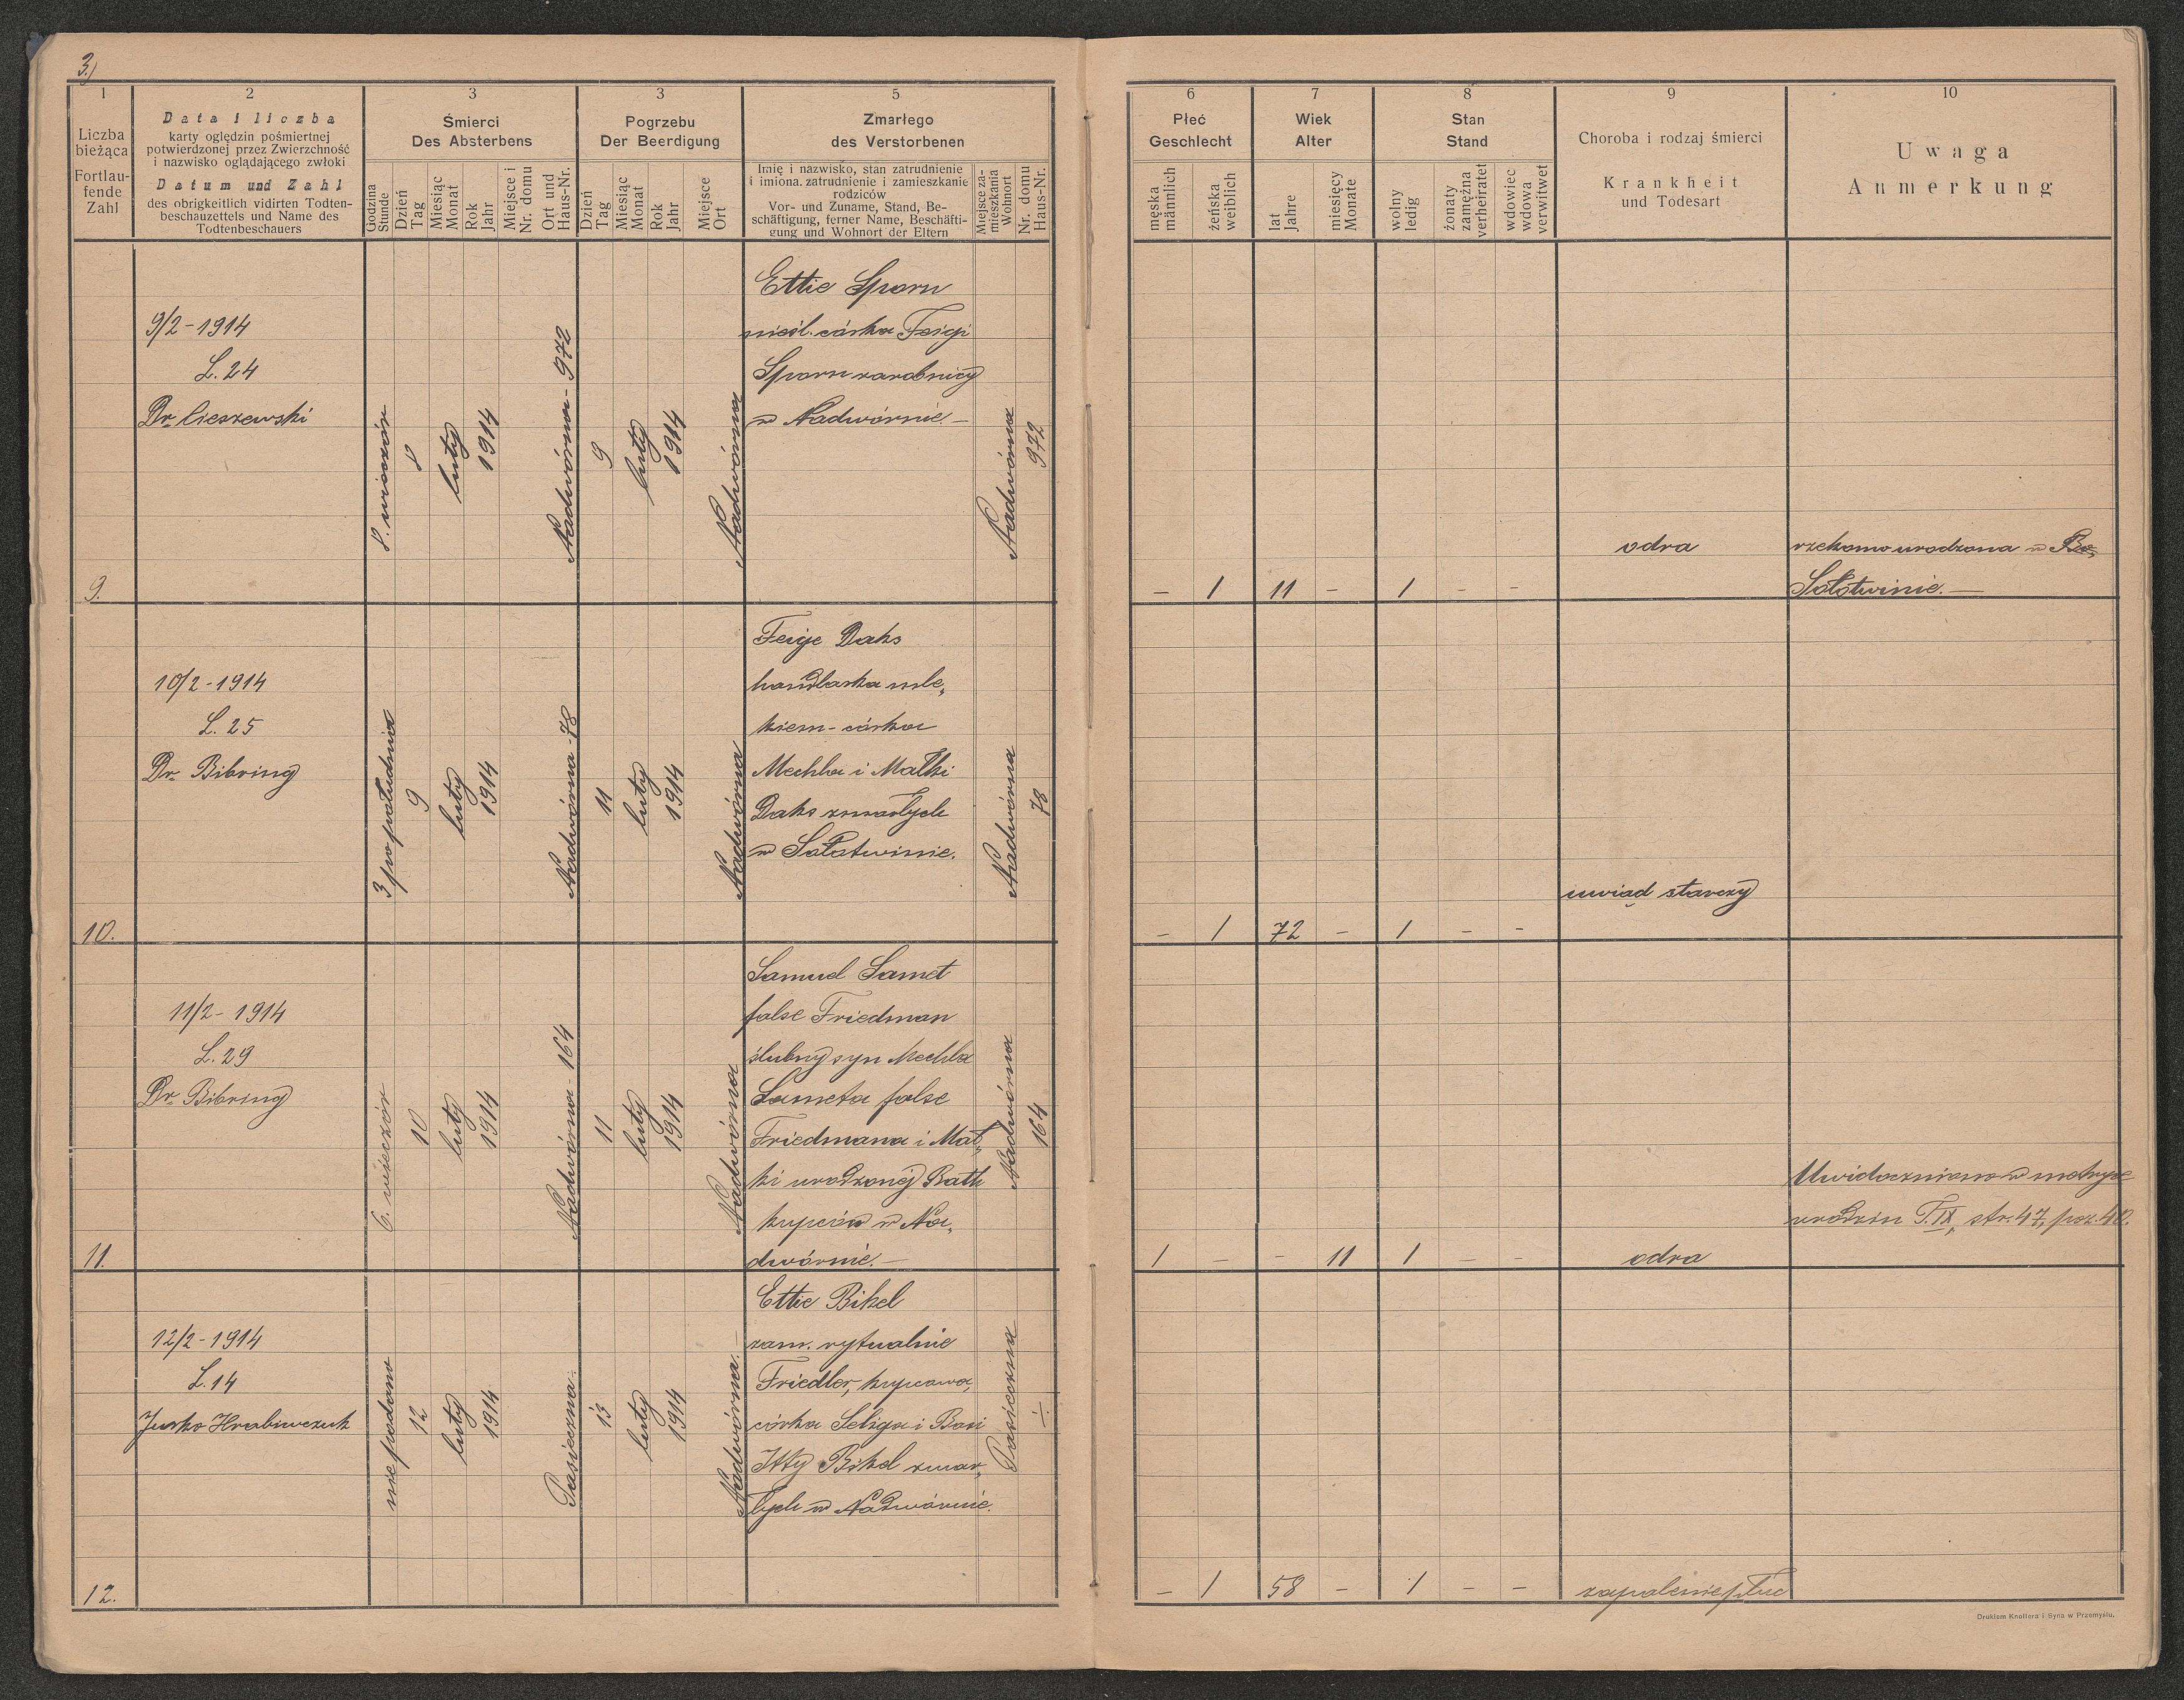 3)
1
Liczba
bieżąca
Fortlau-
fende
Zahl
2
Data i liczba
karty oględzin pośmiertnej
potwierdzonej przez Zwierzchność
i nazwisko oglądającego zwłoki
Datum und Zahl
des obrigkeitlich vidirten Todten-
beschauzettels und Name des
Todtenbeschauers
3
Śmierci
Des Absterbens
Godzina
Stunde
Dzień
Tag
Miesiąc
Monat
Rok
Jahr
Miejsce i
Nr. domu
Ort und
Haus-Nr.
3
Pogrzebu
Der Beerdigung
Dzień
Tag
Miesiąc
Monat
Rok
Jahr
Miejsce
Ort
5
Zmarłego
des Verstorbenen
Imię i nazwisko, stan zatrudnienie
i imiona. zatrudnienie i zamieszkanie
rodziców
Vor- und Zuname, Stand, Be-
schäftigung, ferner Name, Beschäfti-
gung und Wohnort der Eltern
Miejsce za-
mieszkania
Wohnort
Nr. domu
Haus-Nr.
6
Płeć
Geschlecht
męska
männlich
żeńska
weiblich
7
Wiek
Alter
lat
Jahre
miesięcy
Monate
8
Stan
Stand
wolny
ledig
żonaty
zamężna
verheiratet
wdowiec
wdowa
verwitwet
9
Choroba i rodzaj śmierci
Krankheit
und Todesart
10
Uwaga
Anmerkung
9.
9/2-1914
L. 24
Dr. Cieszewski
8. wieczór
8
luty
1914
Nadwórna - 972
9
luty
1914
Nadwórna
Ettie Sporn
nieśl. córka Feigi
Sporn zarobnicy
w Nadwórnie. —
Nadwórna
972
– 1 11 – 1 – –
odra
rzekomo urodzona w Bo,
Sołotwinie. —
10.
10/2-1914
L. 25
Dr. Bibring
3 po południu
9
luty
1914
Nadwórna - 78
11
luty
1914
Nadwórna
Feige Daks
handlarka mle,
kiem - córka
Mechla i Małki
Daks zmarłych
w Sołotwinie.
Nadwórna
78
– 1 72 – 1 – –
uwiąd starczy
11.
11/2-1914
L. 29
Dr. Bibring
6. wieczór
10
luty
1914
Nadwórna - 164
11
luty
1914
Nadwórna
Samuel Samet
false Friedman
ślubny syn Mechla
Sameta false
Friedmana i Mał,
ki urodzonej Rath
kupców w Na,
dwórnie. —
Nadwórna
164
1 – – 11 1 – –
odra
Uwidoczniono w metryce
urodzin T. IX, str. 47, poz. 40.
12.
12/2-1914
L. 14
Jurko Hrabiwczuk
nie podano
12
luty
1914
Pasieczna.
13
luty
1914
Nadwórna. —
Ettie Bikel
zam. rytualnie
Friedler, kupcowa,
córka Seliga i Basi
Itty Bikel zmar,
łych w Nadwórnie.
Pasieczna
÷
– 1 58 – 1 – –
zapalenie płuc
Drukiem Knollera i Syna w Przemyślu.